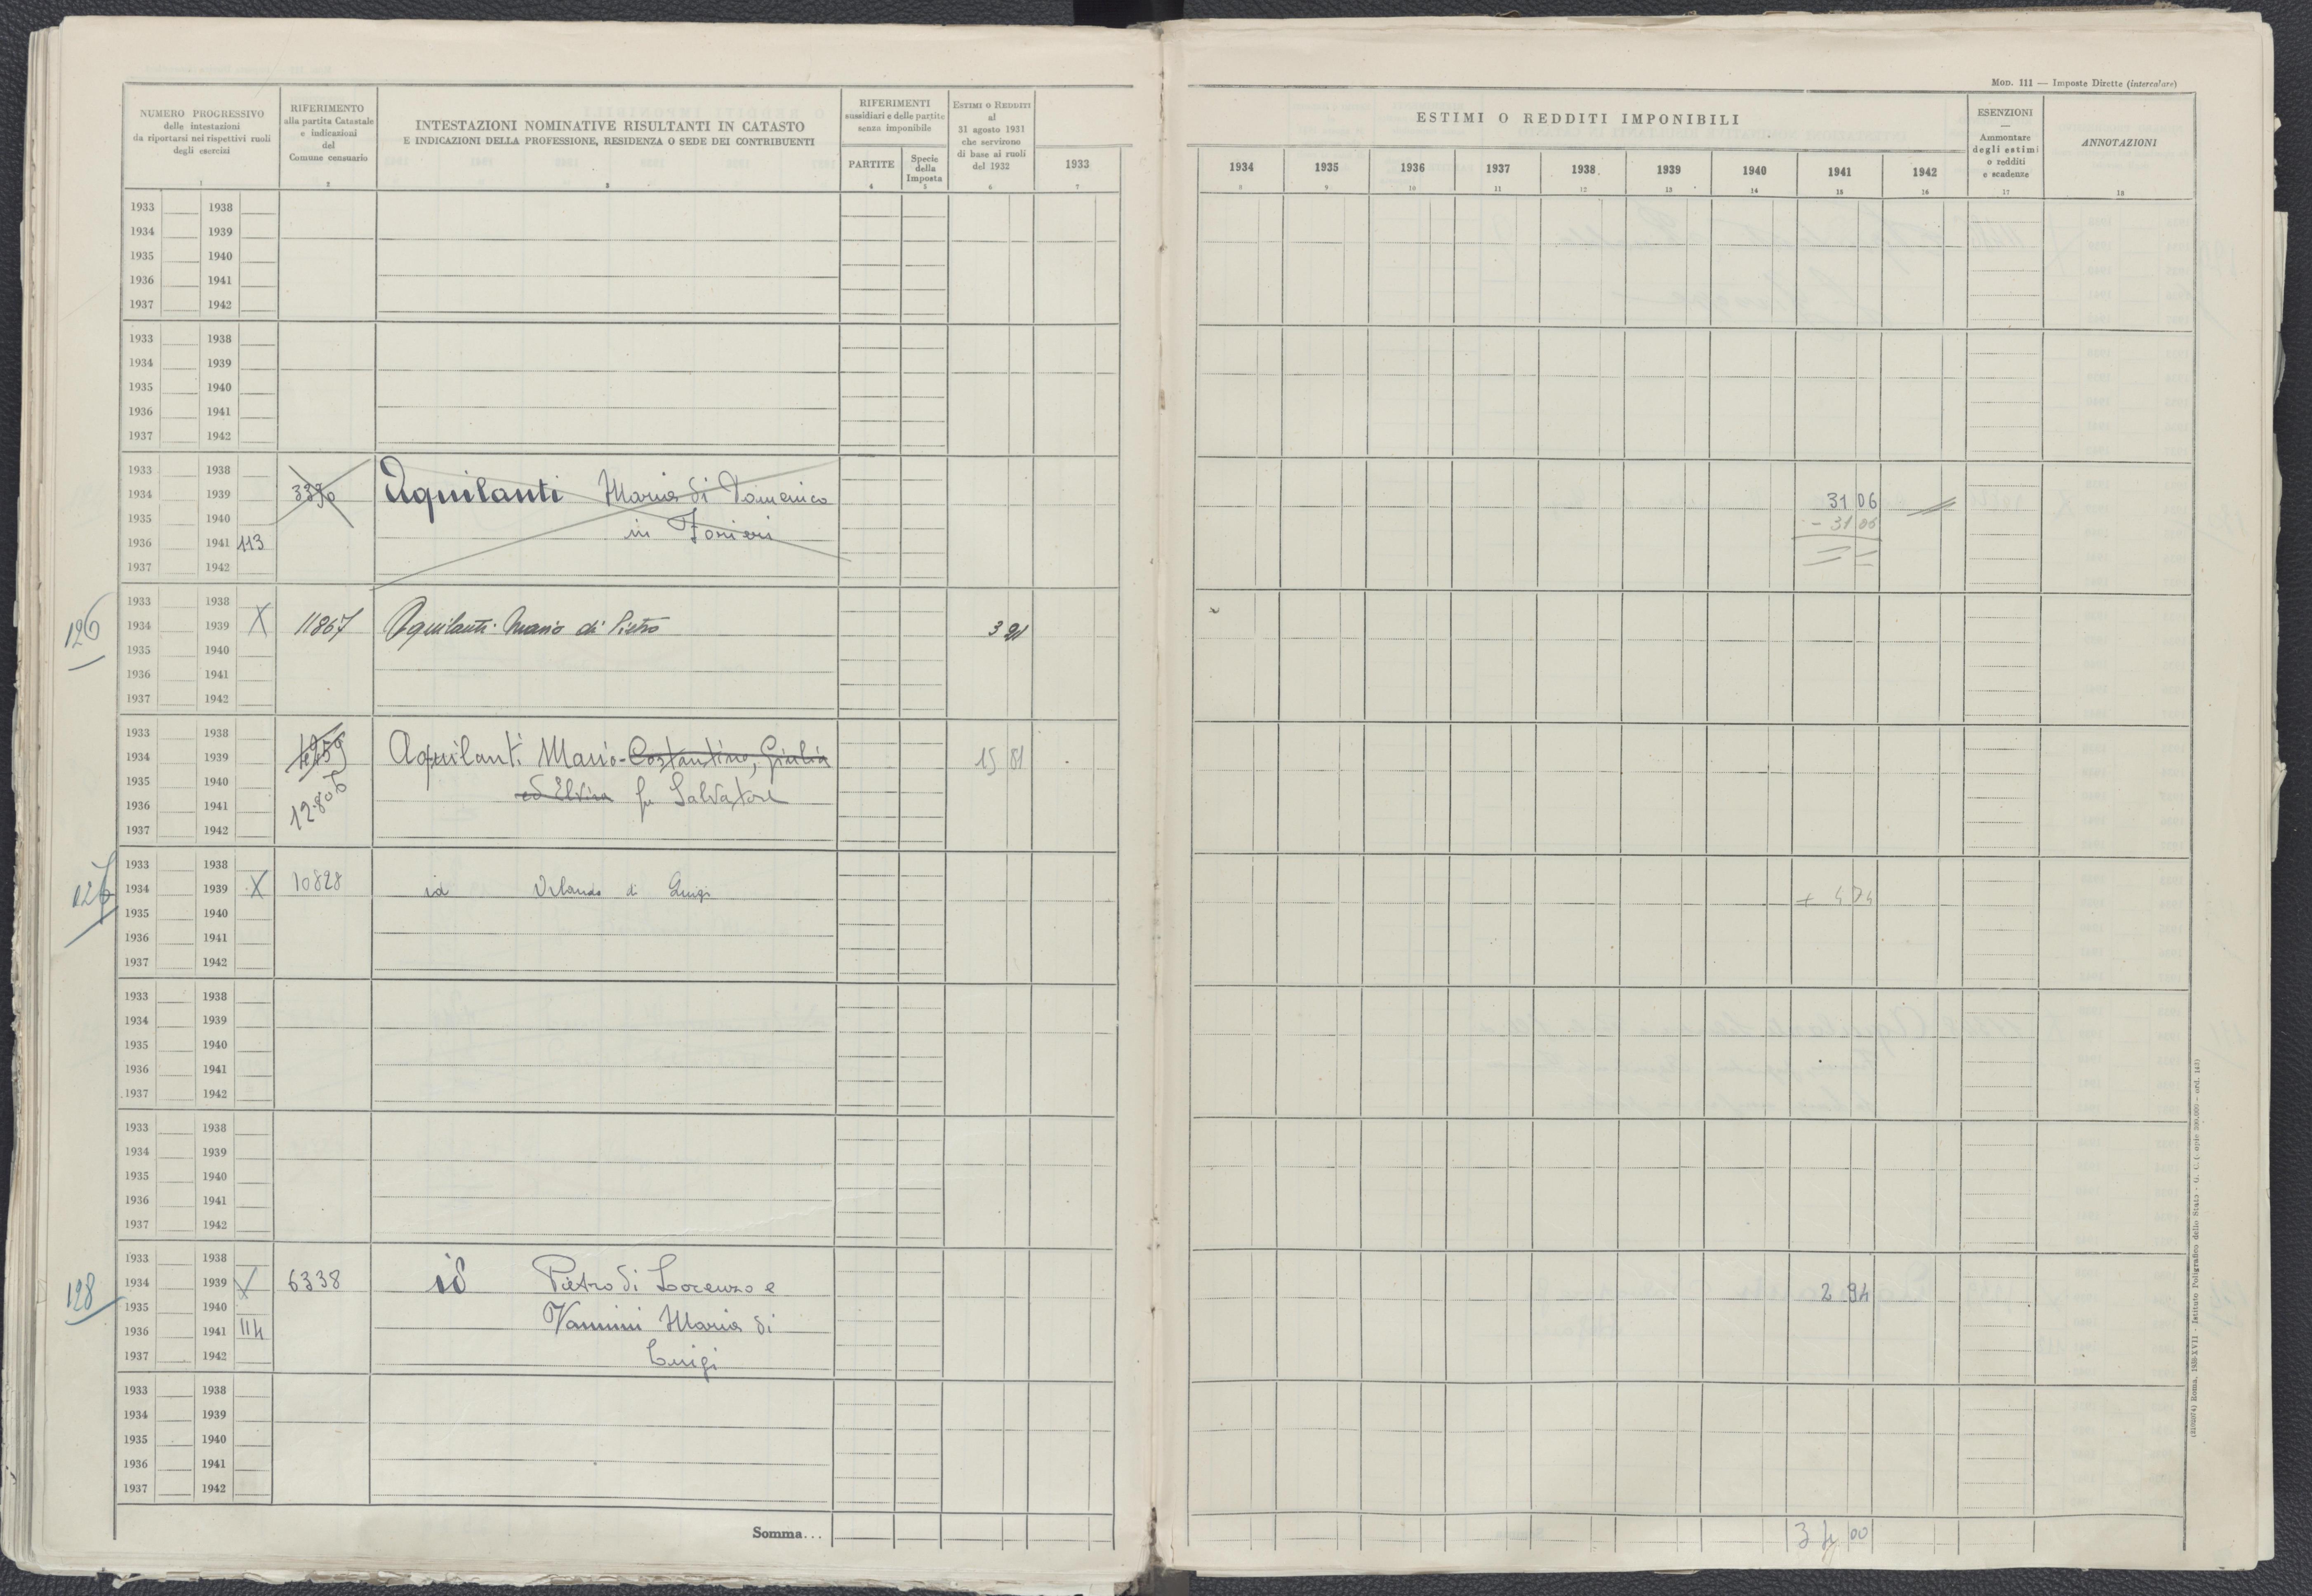 Mod. 111 — Imposte Dirette (intercalare)
NUMERO PROGRESSIVO
delle intestazioni
da riportarsi nei rispettivi ruoli
degli esercizi
1
RIFERIMENTO
alla partita Catastale
e indicazioni
del
Comune censuario
2
INTESTAZIONI NOMINATIVE RISULTANTI IN CATASTO
E INDICAZIONI DELLA PROFESSIONE, RESIDENZA O SEDE DEI CONTRIBUENTI
3
RIFERIMENTI
sussidiari e delle partite
senza imponibile
PARTITE
4
Specie
della
Imposta
5
Estimi o Redditi
al
31 agosto 1931
che servirono
di base ai ruoli
del 1932
6
1933
7
ESTIMI O REDDITI IMPONIBILI
1934 1935 1936 1937 1938 1939 1940 1941 1942
8 9 10 11 12 13 14 15 16
ESENZIONI
—
Ammontare
degli estimi
o redditi
e scadenze
17
ANNOTAZIONI
18
1933 1938
1934 1939
1935 1940
1936 1941
1937 1942
1933 1938
1934 1939
1935 1940
1936 1941
1937 1942
1933 1938
1934 1939 3390 Aquilanti Maria di Domenico 31 06
1935 1940 in - 31 06
1936 1941 113
1937 1942
1933 1938
126 1934 1939 X 11867 Aquilanti Mario di Pietro 3 91
1935 1940
1936 1941
1937 1942
1933 1938
1934 1939 4959 Aquilanti Mario-Costantino, Giulia 15 81
1935 1940 ed Elvira fu Salvatore
1936 1941 12806
1937 1942
1933 1938
1934 1939 X 10828 id Orlando di Luigi
1935 1940
1936 1941
1937 1942
1933 1938
1934 1939
1935 1940
1936 1941
1937 1942
1933 1938
1934 1939
1935 1940
1936 1941
1937 1942
1933 1938
128 1934 1939 X 6338 id Pietro di Lorenzo e 2 94
1935 1940
1936 1941 114 Vannini Maria di
1937 1942 Luigi
1933 1938
1934 1939
1935 1940
1936 1941
1937 1942
Somma... 34 00